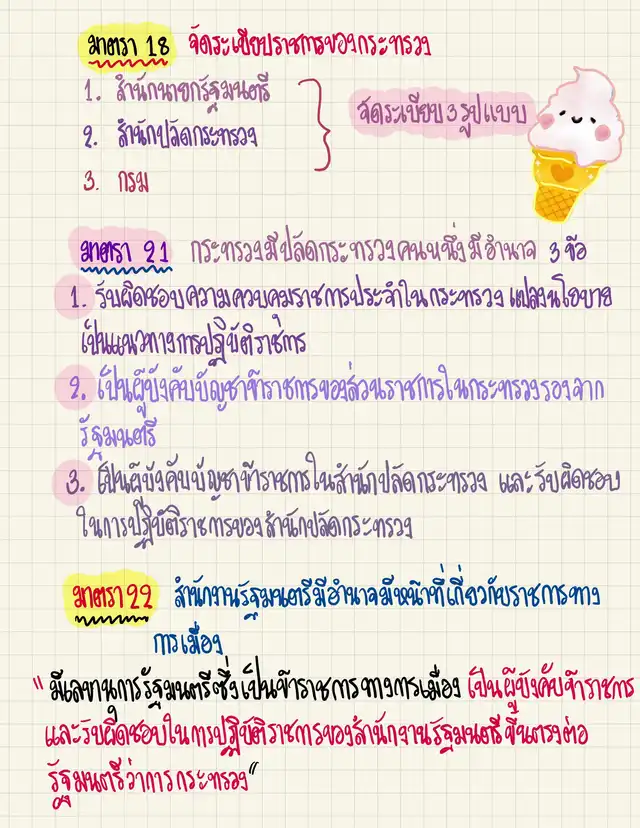 มาตรา 18 จัดระเบียบราชการของกระทรวง
1. สำนักนายกรัฐมนตรี
2. สำนักปลัดกระทรวง
3. กรม
จัดระเบียบ 3 รูปแบบ
มาตรา 21 กระทรวงมีปลัดกระทรวงคนหนึ่งมีอำนาจ 3 ข้อ
1. รับผิดชอบความควบคุมราชการประจำในกระทรวง แปลงนโยบาย
เป็นแนวทางการปฏิบัติราชการ
2. เป็นผู้บังคับบัญชาข้าราชการของส่วนราชการในกระทรวงรองจาก
รัฐมนตรี
3. เป็นผู้บังคับบัญชาข้าราชการในสำนักปลัดกระทรวง และรับผิดชอบ
ในการปฏิบัติราชการของสำนักปลัดกระทรวง
มาตรา 22 สำนักงานรัฐมนตรีมีอำนาจมีหน้าที่เกี่ยวกับราชการทาง
การเมือง
"มีเลขานุการรัฐมนตรีซึ่งเป็นข้าราชการทางการเมือง เป็นผู้บังคับข้าราชการ
และรับผิดชอบในการปฏิบัติราชการของสำนักงานรัฐมนตรี ขึ้นตรงต่อ
รัฐมนตรีว่าการกระทรวง"